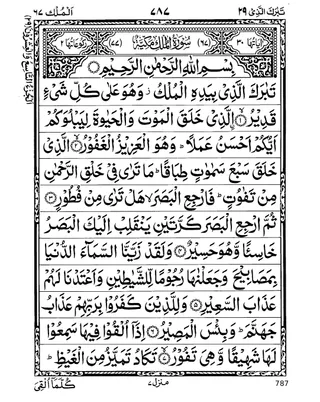 تَبٰرَكَ الَّذِىْ ٢٩ ٧٨٧ اَلْمُلْك ٦٧
اٰيَاتُهَا ٣٠ (٦٧) سُوْرَةُ الْمُلْكِ مَكِّيَّةٌ (٧٧) رُكُوْعَاتُهَا ٢
بِسْمِ اللّٰهِ الرَّحْمٰنِ الرَّحِيْمِ
تَبٰرَكَ الَّذِىْ بِيَدِهِ الْمُلْكُ وَهُوَ عَلٰى كُلِّ شَىْءٍ
قَدِيْرُ ۙ﴿١﴾ الَّذِىْ خَلَقَ الْمَوْتَ وَالْحَيٰوةَ لِيَبْلُوَكُمْ
اَيُّكُمْ اَحْسَنُ عَمَلًا ؕ وَهُوَ الْعَزِيْزُ الْغَفُوْرُ ۙ﴿٢﴾ الَّذِىْ
خَلَقَ سَبْعَ سَمٰوٰتٍ طِبَاقًا ؕ مَا تَرٰى فِىْ خَلْقِ الرَّحْمٰنِ
مِنْ تَفٰوُتٍ ؕ فَارْجِعِ الْبَصَرَ ۙ هَلْ تَرٰى مِنْ فُطُوْرٍ ﴿٣﴾
ثُمَّ ارْجِعِ الْبَصَرَ كَرَّتَيْنِ يَنْقَلِبْ اِلَيْكَ الْبَصَرُ
خَاسِئًا وَّهُوَ حَسِيْرٌ ﴿٤﴾ وَلَقَدْ زَيَّنَّا السَّمَآءَ الدُّنْيَا
بِمَصَابِيْحَ وَجَعَلْنٰهَا رُجُوْمًا لِّلشَّيٰطِيْنِ وَاَعْتَدْنَا لَهُمْ
عَذَابَ السَّعِيْرِ ﴿٥﴾ وَلِلَّذِيْنَ كَفَرُوْا بِرَبِّهِمْ عَذَابُ
جَهَنَّمَ ؕ وَبِئْسَ الْمَصِيْرُ ﴿٦﴾ اِذَآ اُلْقُوْا فِيْهَا سَمِعُوْا
لَهَا شَهِيْقًا وَّهِىَ تَفُوْرُ ۙ﴿٧﴾ تَكَادُ تَمَيَّزُ مِنَ الْغَيْظِ ؕ
كُلَّمَآ اُلْقِىَ منزل ٧ 787